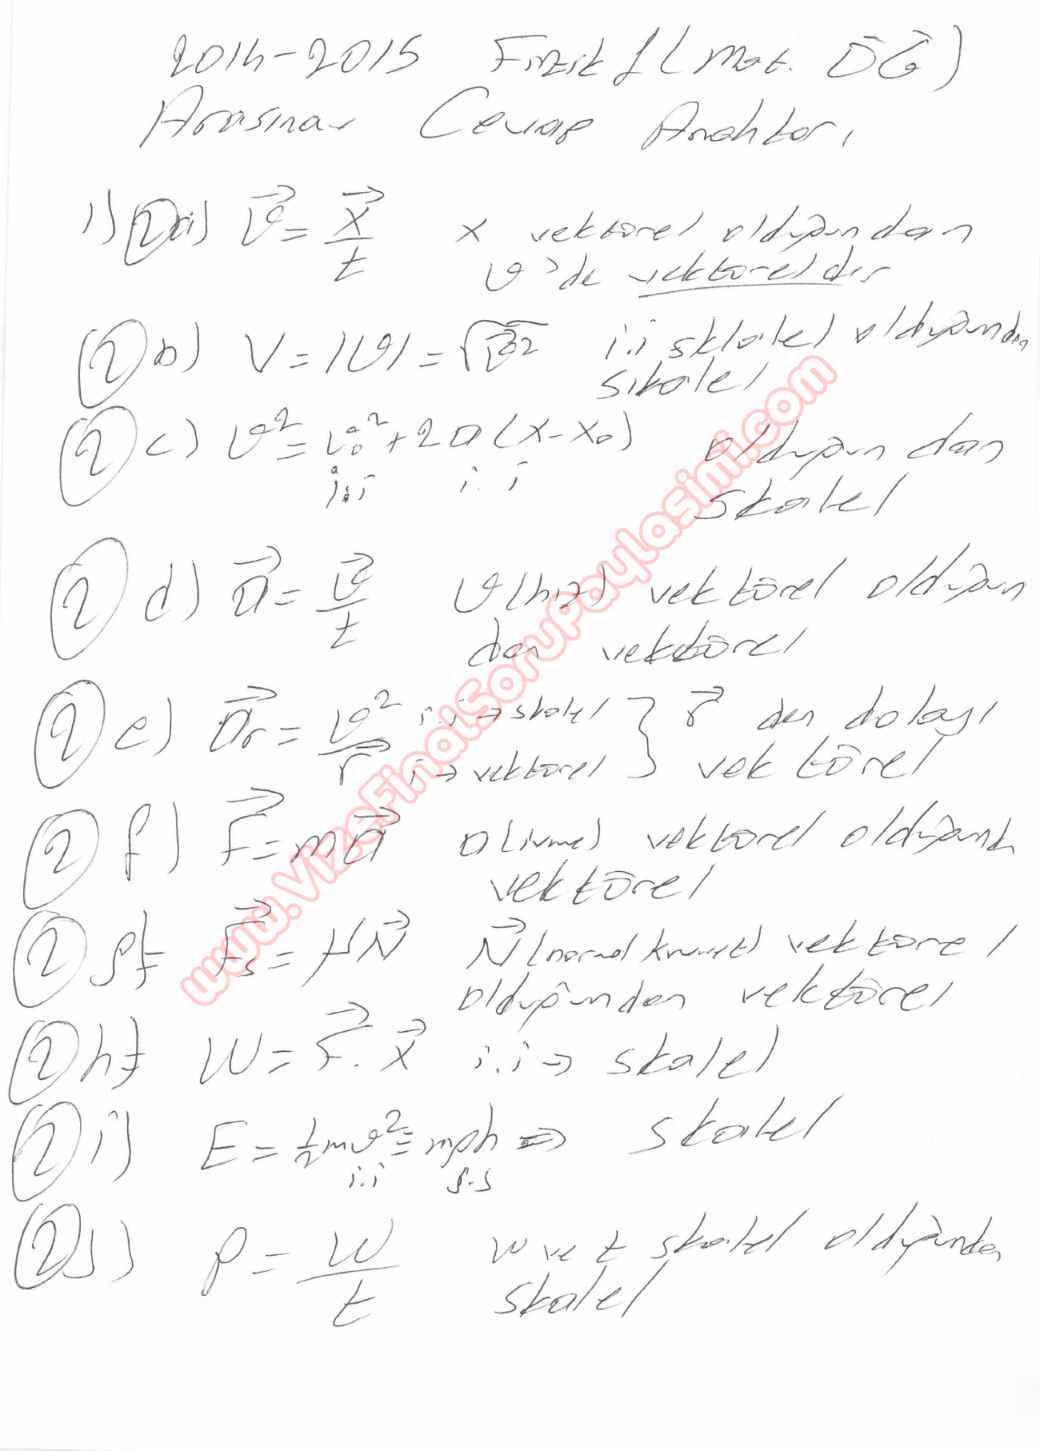 2014-2015 Fizik 1 (Mat. ÖĞ)
Arasınav Cevap Anahtarı
1) (2) a) v⃗ = x⃗/t x vektörel olduğundan
v'de vektöreldir
(2) b) V = |v| = √v⃗² i.i skalel olduğundan
skalel
(2) c) v² = v₀² + 2a(x-x₀) olduğundan
i.i i.i skalel
(2) d) a⃗ = v⃗/t v(hız) vektörel olduğun
dan vektörel
(2) e) a⃗r = v²/r⃗ i.i → skalel } r⃗ den dolayı
i → vektörel vektörel
(2) f) F⃗ = ma⃗ a(ivme) vektörel olduğundan
vektörel
(2) g) F⃗s = μN⃗ N⃗(normal kuvvet) vektörel
olduğundan vektörel
(2) h) W = F⃗.x⃗ i.i → skalel
(2) i) E = ½mv² = mgh => skalel
i.i g.s
(2) j) P = W/t W ve t skalel olduğundan
skalel
www.VizeFinalSoruPaylasimi.com